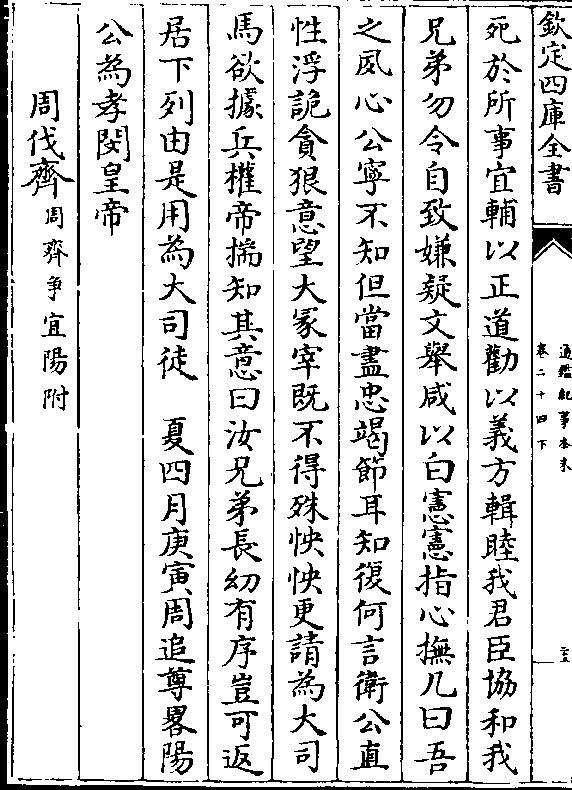 欽定四庫全書
通鑑紀事本末
卷二十四下
死於所事宜輔以正道勸以義方輯睦我君臣協和我
兄弟勿令自致嫌疑文舉咸以白憲憲指心撫几曰吾
之夙心公寧不知但當盡忠竭節耳知復何言衛公直
性浮詭貪狠意望大冢宰既不得殊怏怏更請為大司
馬欲據兵權帝揣知其意曰汝兄弟長幼有序豈可返
居下列由是用為大司徒　夏四月庚寅周追尊畧陽
公為孝閔皇帝
周伐齊周齊爭宜陽附